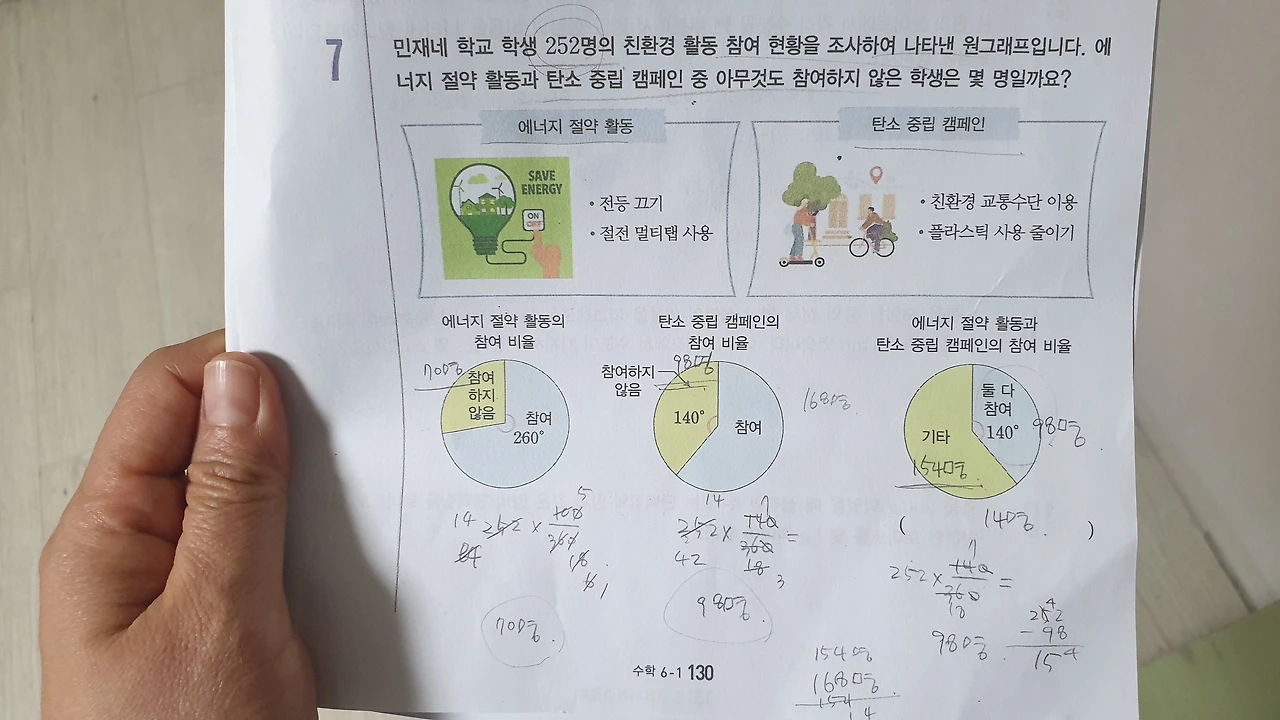 7
민재네 학교 학생 252명의 친환경 활동 참여 현황을 조사하여 나타낸 원그래프입니다. 에
너지 절약 활동과 탄소 중립 캠페인 중 아무것도 참여하지 않은 학생은 몇 명일까요?
에너지 절약 활동
SAVE
ENERGY
ON
OFF
• 전등 끄기
• 절전 멀티탭 사용
탄소 중립 캠페인
• 친환경 교통수단 이용
• 플라스틱 사용 줄이기
에너지 절약 활동의
참여 비율
70명
참여
하지
않음
참여
260°
탄소 중립 캠페인의
참여 비율
98명
참여하지
않음
140°
참여
168명
에너지 절약 활동과
탄소 중립 캠페인의 참여 비율
둘 다
참여
140°
98명
기타
154명
( 14명 )
5
14 252 × 100/360
18
1
70명
14 7
252 × 140/360 =
42 18 3
98명
7
252 × 140/360 =
98명
252
- 98
154
154명
168명
154
14
수학 6-1 130